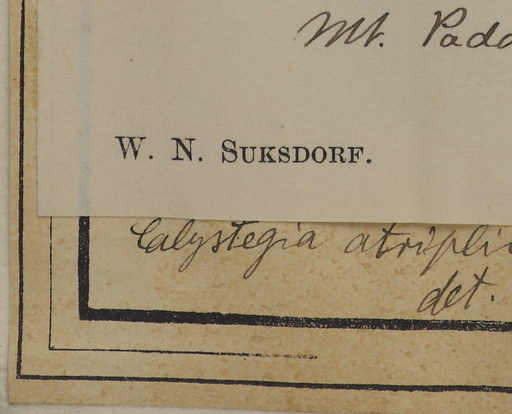 Mt. Padd
W. N. SUKSDORF.
Calystegia atripli
det.